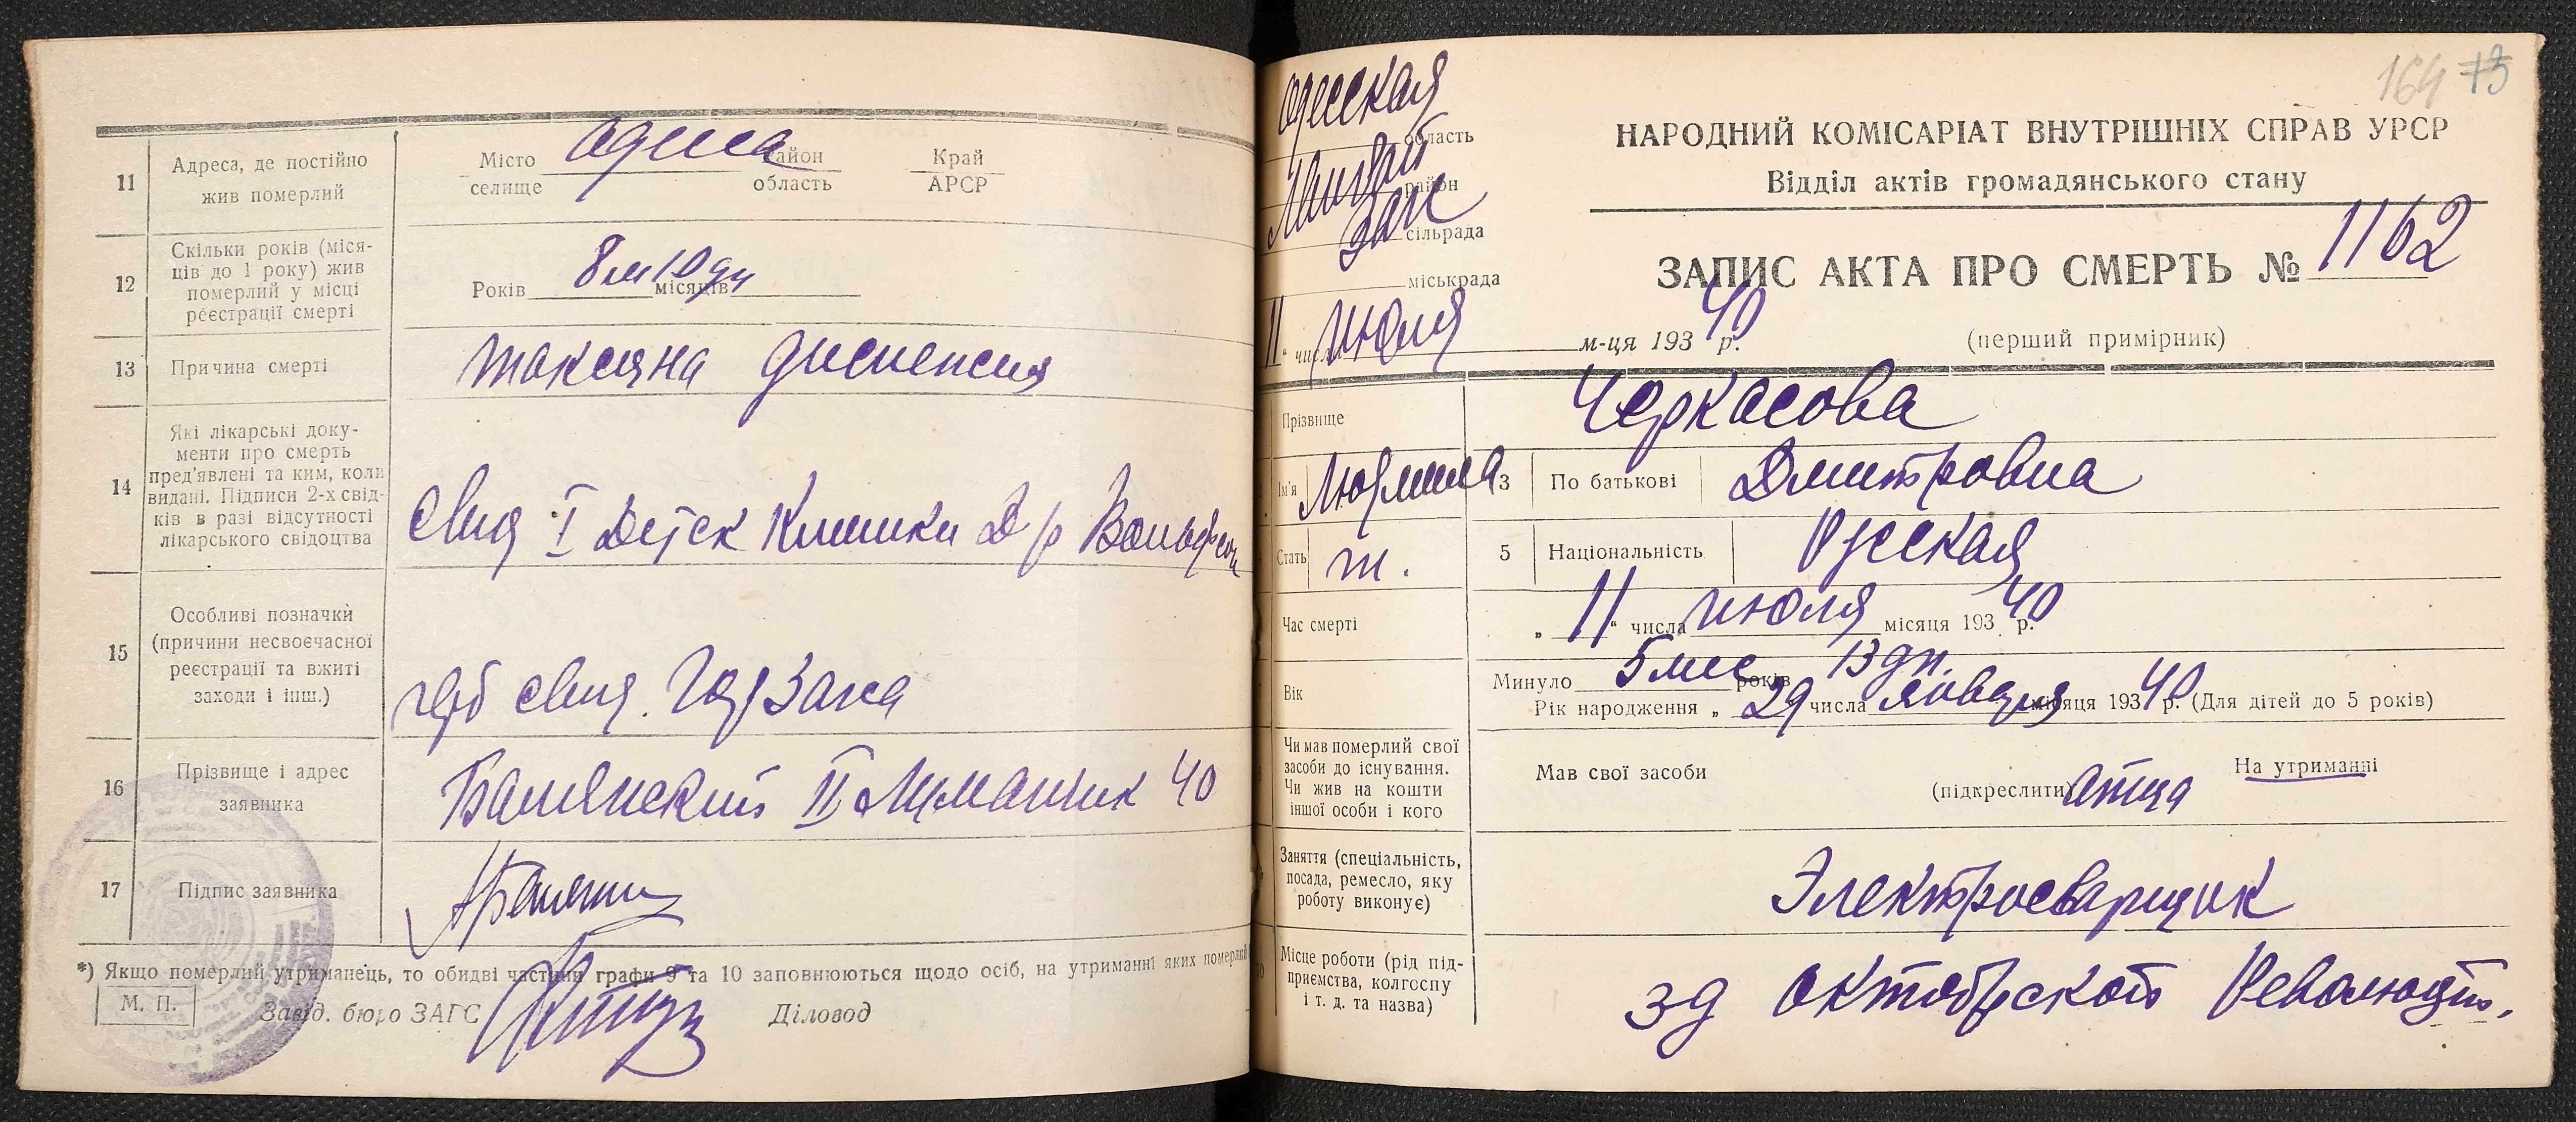 11
Адреса, де постійно
жив померлий
Місто Одесса район Край
селище область АРСР
12
Скільки років (міся-
ців до 1 року) жив
померлий у місці
реєстрації смерті
Років 8 м 10 дн місяців
13
Причина смерті
токсична диспепсия
14
Які лікарські доку-
менти про смерть
пред'явлені та ким, коли
видані. Підписи 2-х свід-
ків в разі відсутності
лікарського свідоцтва
Свид I Детск Клиники Д р Вольфсон
15
Особливі позначки
(причини несвоєчасної
реєстрації та вжиті
заходи і інш.)
герб свид. ЗАГСа
16
Прізвище і адрес
заявника
II Лиманчик 40
17
Підпис заявника
*) Якщо померлий утриманець, то обидві частини графи 9 та 10 заповнюються щодо осіб, на утриманні яких померлий
М. П.
Завід. бюро ЗАГС Діловод
164 73
Одесская
область
район
Загс
сільрада
міськрада
11 " числа июля м-ця 193 40 р.
НАРОДНИЙ КОМІСАРІАТ ВНУТРІШНІХ СПРАВ УРСР
Відділ актів громадянського стану
ЗАПИС АКТА ПРО СМЕРТЬ № 1162
(перший примірник)
Прізвище
Черкасова
Ім'я Людмила 3 По батькові Дмитровна
Стать ж. 5 Національність Русская
Час смерті
„ 11 " числа июля місяця 193 40 р.
Вік
Минуло 5 мес 13 дн. років
Рік народження „ 29 числа января місяця 193 40 р. (Для дітей до 5 років)
Чи мав померлий свої
засоби до існування.
Чи жив на кошти
іншої особи і кого
Мав свої засоби (підкреслити) отца На утриманні
Заняття (спеціальність,
посада, ремесло, яку
роботу виконує)
Электросварщик
Місце роботи (рід під-
приємства, колгоспу
і т. д. та назва)
зд Октябрской Революции.